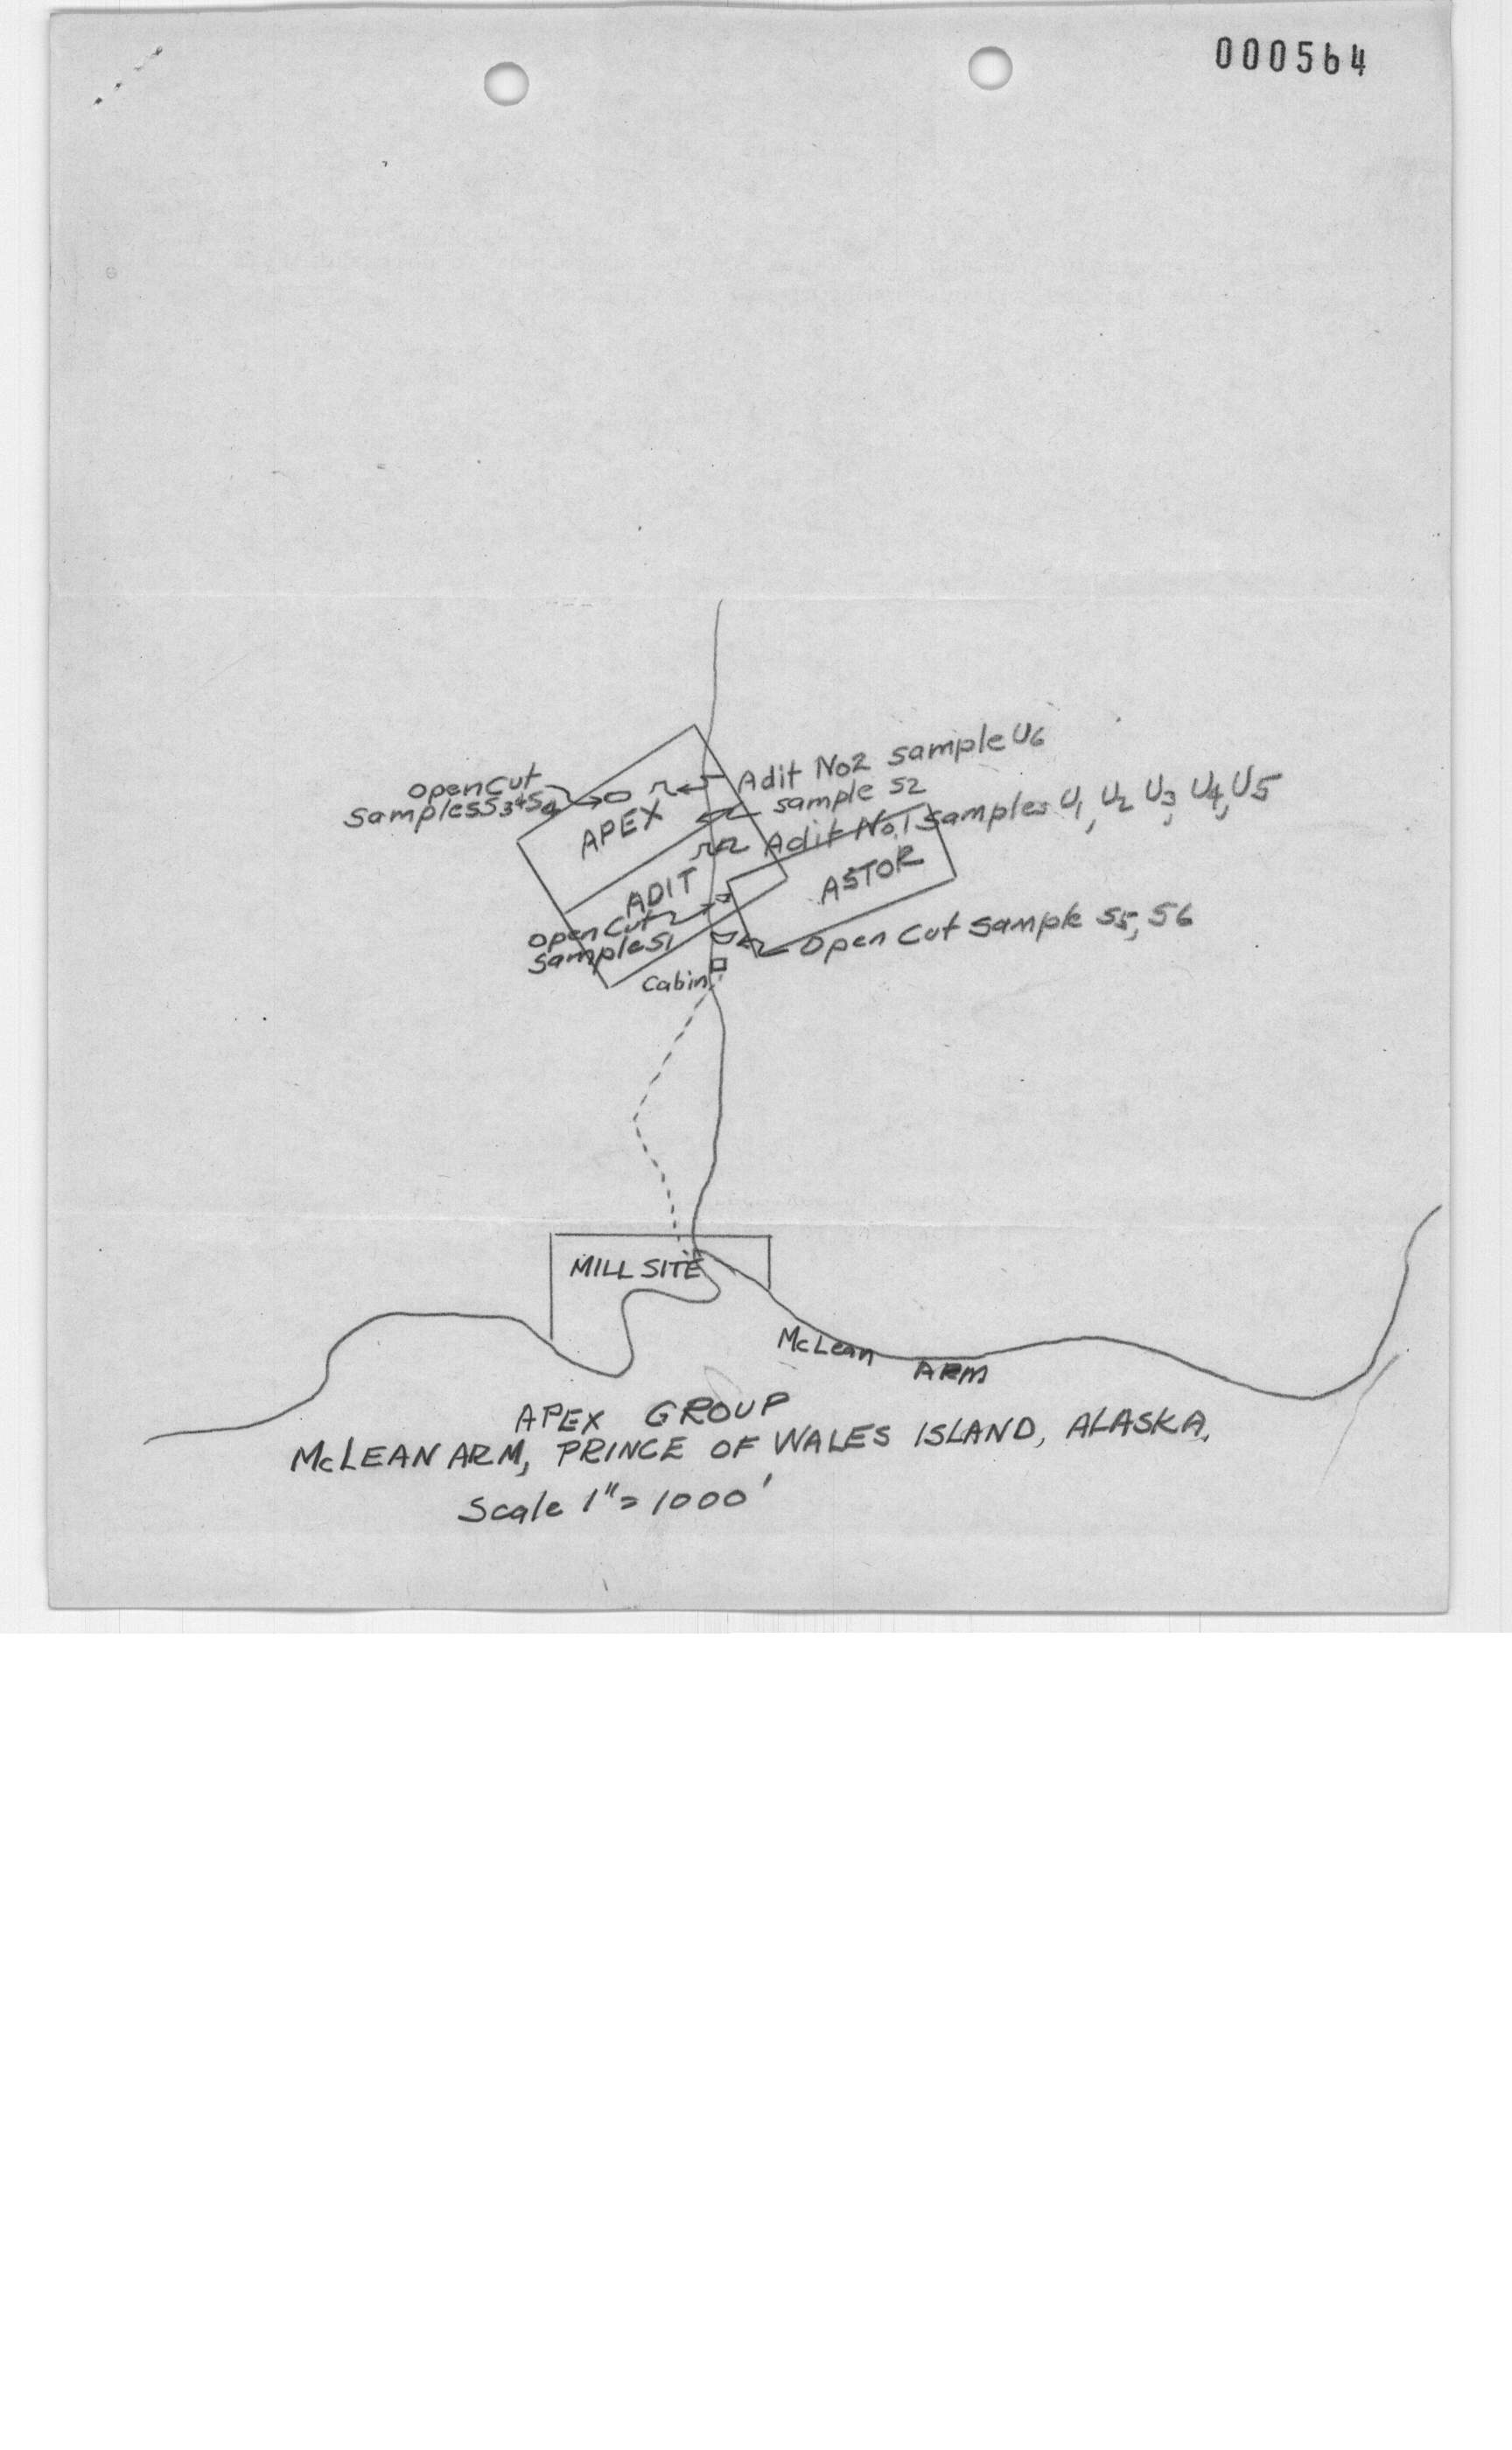 000564
Adit No2 sample U6
open Cut
Samples S3+S4
sample S2
APEX
Adit No.1 samples U1, U2 U3, U4, U5
ASTOR
ADIT
open Cut
Sample S1
Open Cut Sample S5, S6
Cabin
MILL SITE
McLean ARM
APEX GROUP
McLEAN ARM, PRINCE OF WALES ISLAND, ALASKA.
Scale 1"=1000'